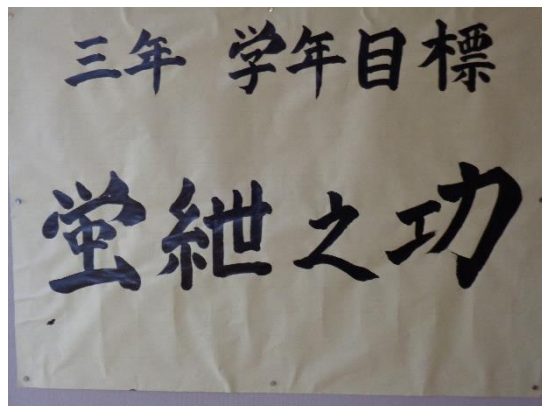 三年 学年目標
蛍紲之功